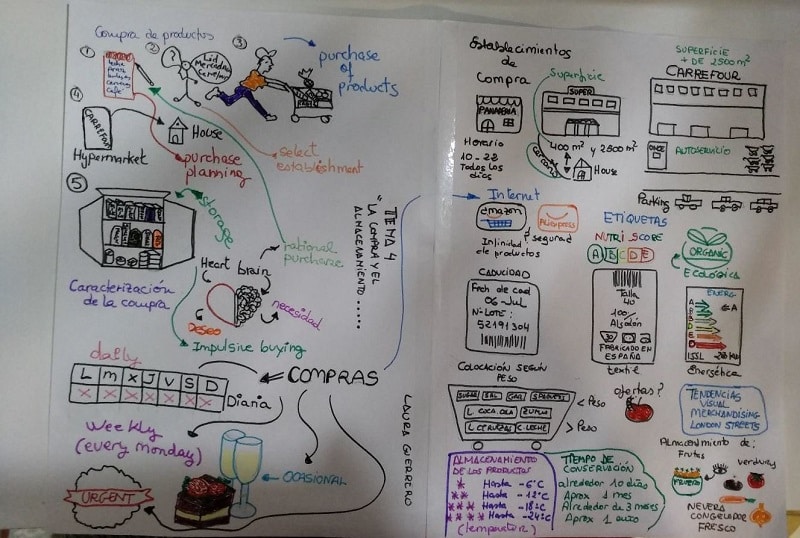 Compra de productos
1
2
3
?
Lidl
Mercadona
Carrefour
purchase
of
products
leche
café
4
CARREFOUR
Hypermarket
House
purchase
planning
select
establishment
5
storage
rational
purchase
Heart brain
Deseo
necesidad
Caracterización
de la compra
Impulsive buying
TEMA 4
"LA COMPRA Y EL
ALMACENAMIENTO .....
daily
L M X J V S D
X X X X X X X
Diaria
COMPRAS
Weekly
(every monday)
OCASIONAL
URGENT
LAURA GUERRERO
Establecimientos
de
Compra
PANADERIA
Horario
10 - 22
Todos los
días
Superficie
SUPER
400 m² y 2500 m²
cercanía
House
SUPERFICIE
+ DE 2500 m²
CARREFOUR
ONCE
AUTOSERVICIO
Parking
Internet
amazon
Aliexpress
Infinidad
de productos
seguridad
ETIQUETAS
NUTRI SCORE
A B C D E
ORGANIC
ECOLÓGICA
CADUCIDAD
Fech de cad
06-Jul
Nº LOTE:
52191304
Talla
40
100%
Algodón
FABRICADO EN
ESPAÑA
textil
ENERGY
A
Energética
COLOCACIÓN SEGÚN
PESO
L COCA COLA ZUMOS
L CERVEZAS C LECHE
< Peso
> Peso
ofertas?
TENDENCIAS
VISUAL
MERCHANDISING
LONDON STREETS
ALMACENAMIENTO
DE LOS PRODUCTOS
* Hasta -6°C
** Hasta -12°C
*** Hasta -18°C
**** Hasta -24°C
(temperatur)
TIEMPO DE
CONSERVACIÓN
alrededor 10 días
Aprox 1 mes
Alrededor de 3 meses
Aprox 1 año
Almacenamiento de:
Frutas
verduras
NEVERA
CONGELADOR
FRESCO